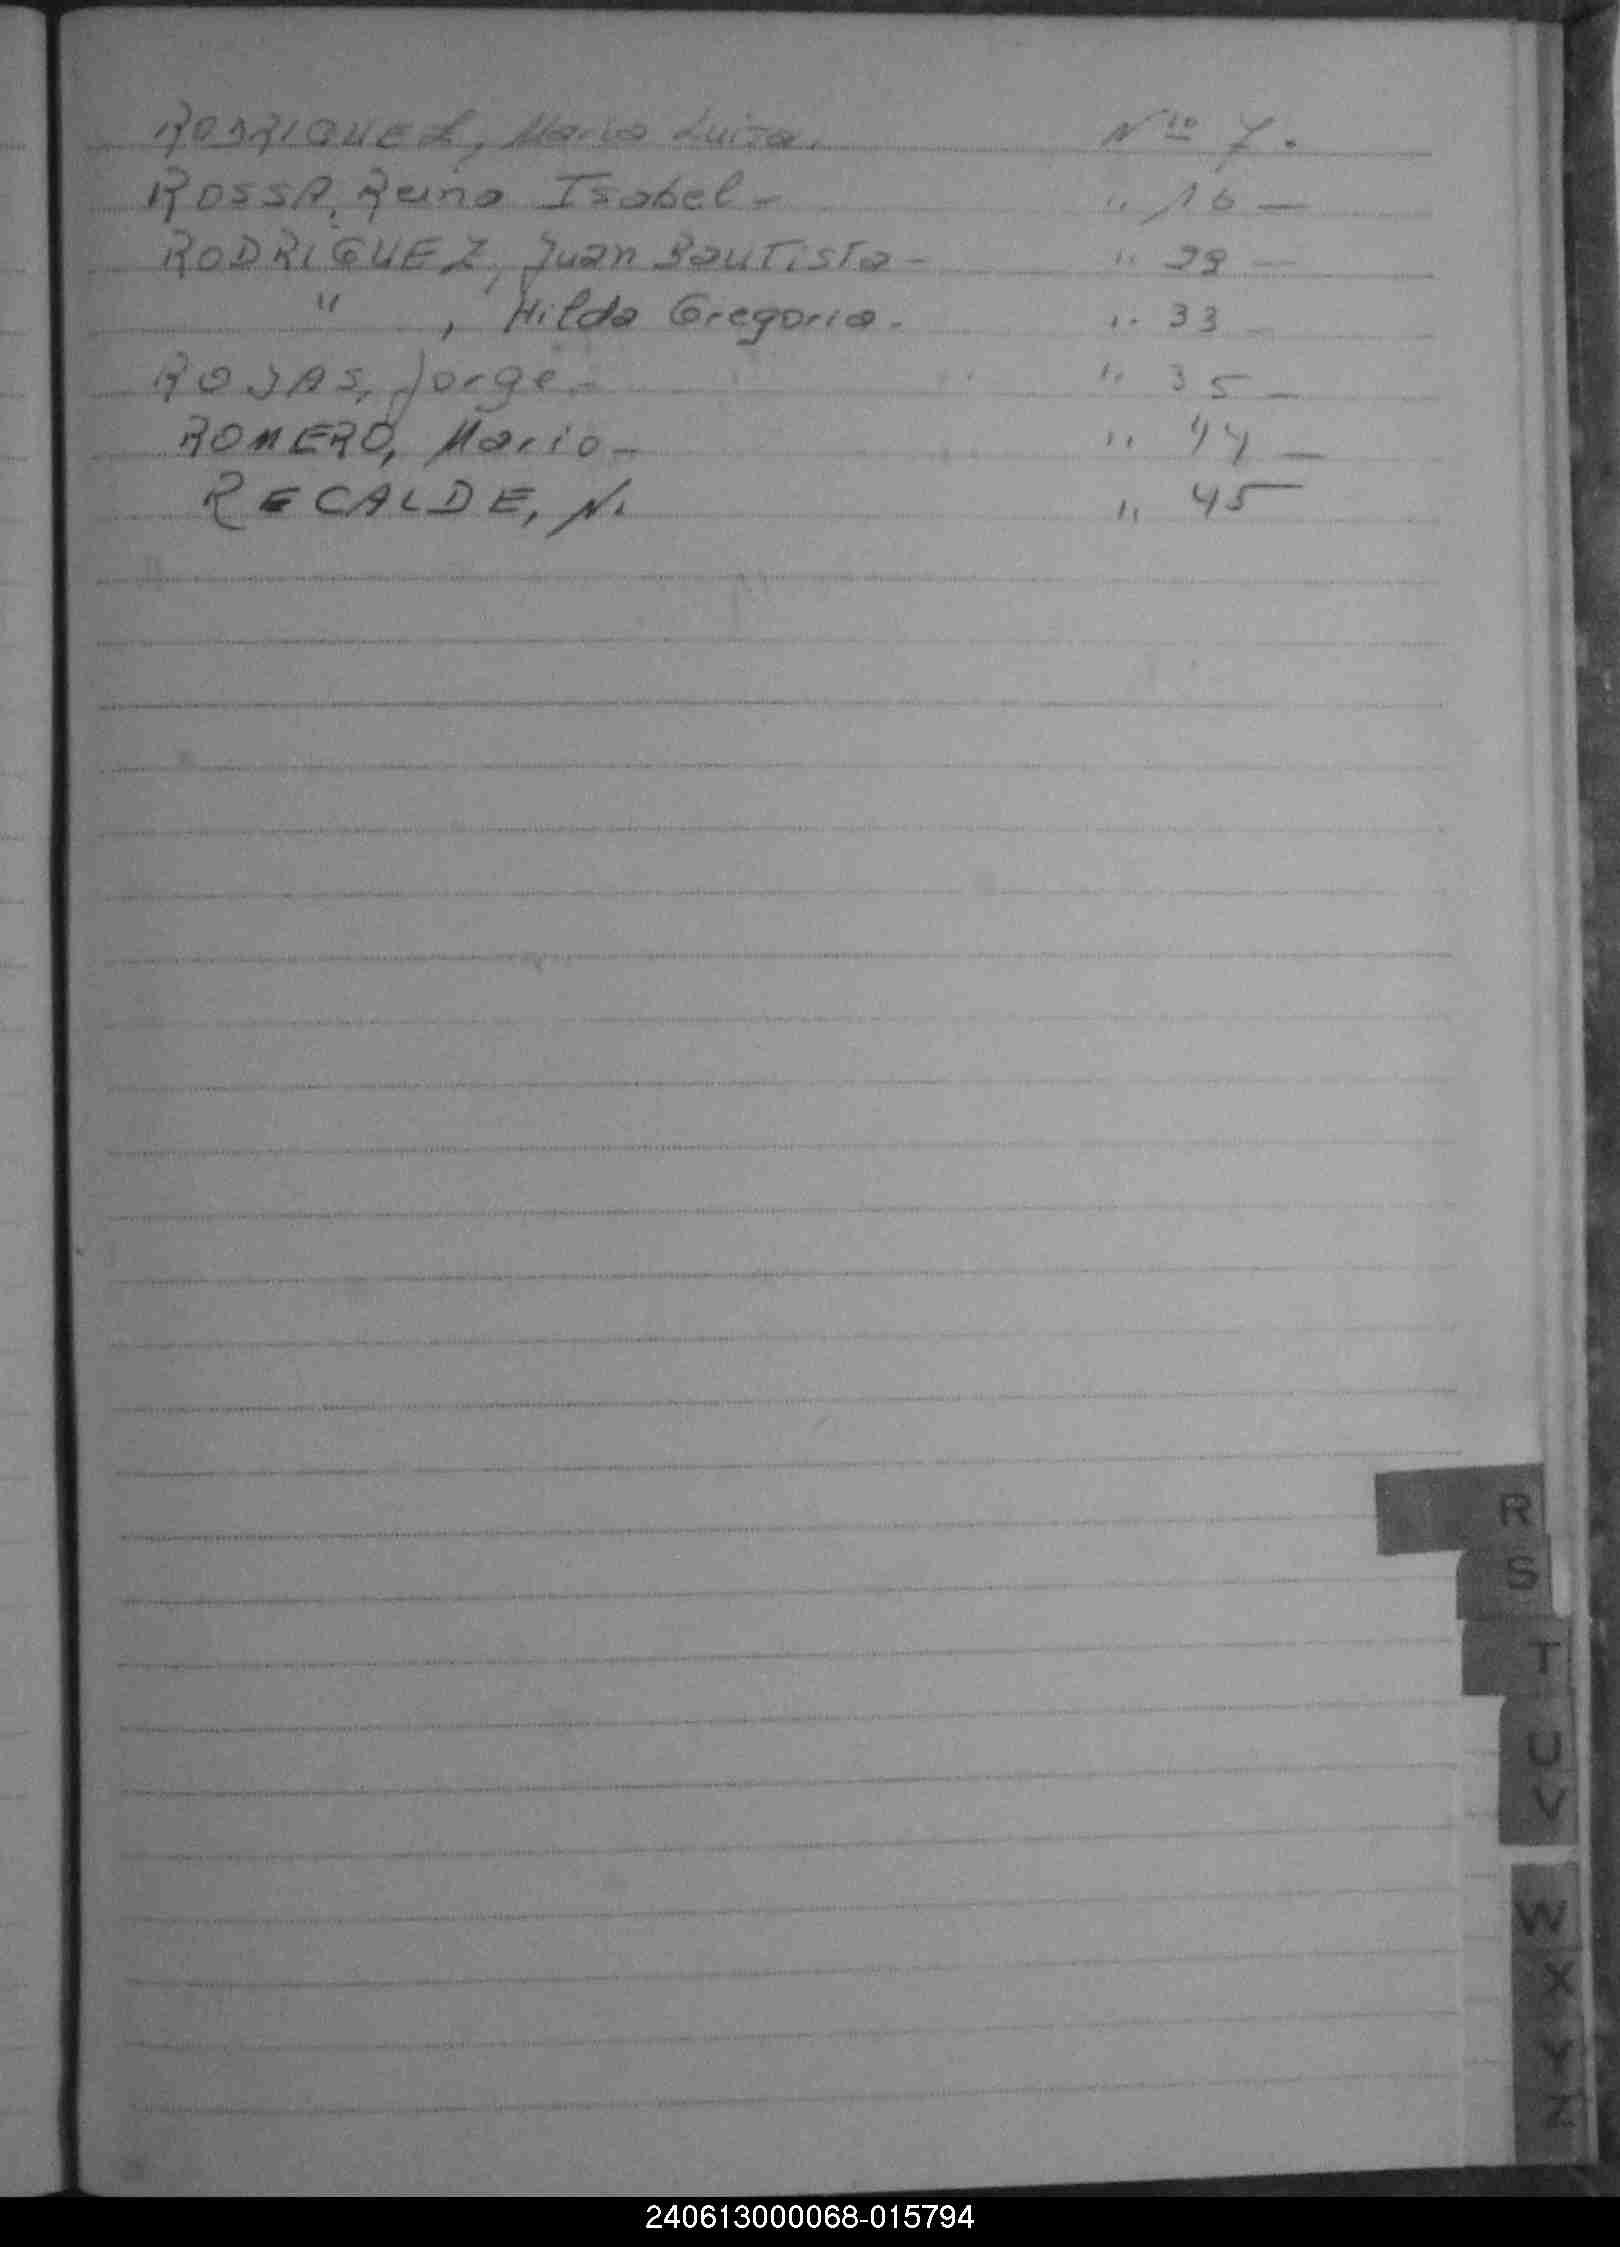 RODRIGUEZ, Maria Luisa. Nro 7.
ROSSA, Reina Isabel - " 16 —
RODRIGUEZ, Juan Bautista - " 29 —
" , Hilda Gregoria. " 33 -
ROJAS, Jorge - " 35 —
ROMERO, Mario - " 44 —
RECALDE, N. " 45
R
S
T
U
V
W
X
Y
Z
240613000068-015794